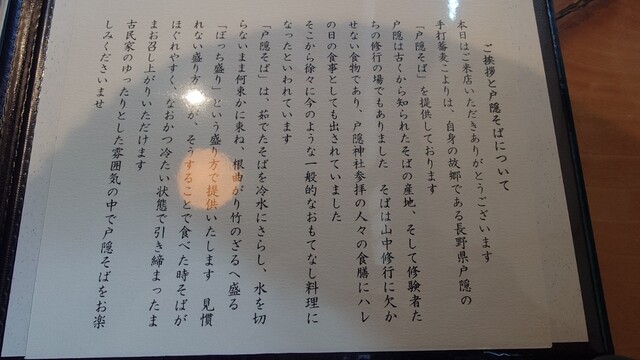 ご挨拶と戸隠そばについて
本日はご来店いただきありがとうございます
手打蕎麦こよりは、自身の故郷である長野県戸隠の
「戸隠そば」を提供しております
戸隠は古くから知られたそばの産地、そして修験者た
ちの修行の場でもありました そばは山中修行に欠か
せない食物であり、戸隠神社参拝の人々の食膳にハレ
の日の食事としても出されていました
そこから徐々に今のような一般的なおもてなし料理に
なったといわれています
「戸隠そば」は、茹でたそばを冷水にさらし、水を切
らないまま何束かに束ね、根曲がり竹のざるへ盛る
「ぼっち盛り」という盛り方で提供いたします 見慣
れない盛り方が、そうすることで食べた時そばが
ほぐれやすく、なおかつ冷たい状態で引き締まったま
まお召し上がりいただけます
古民家のゆったりとした雰囲気の中で戸隠そばをお楽
しみくださいませ